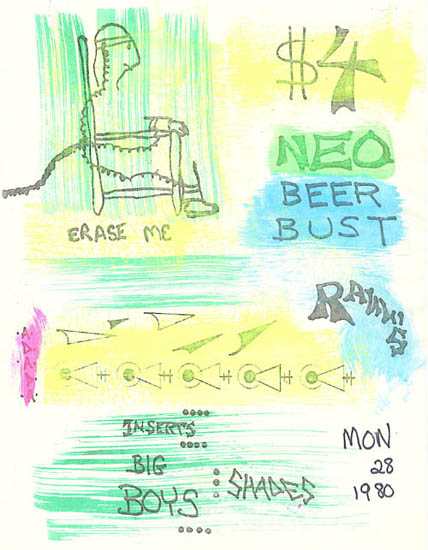 $4
NEO
BEER
BUST
ERASE ME
RAUL'S
INSERTS
BIG
BOYS
SHADES
MON
28
1980